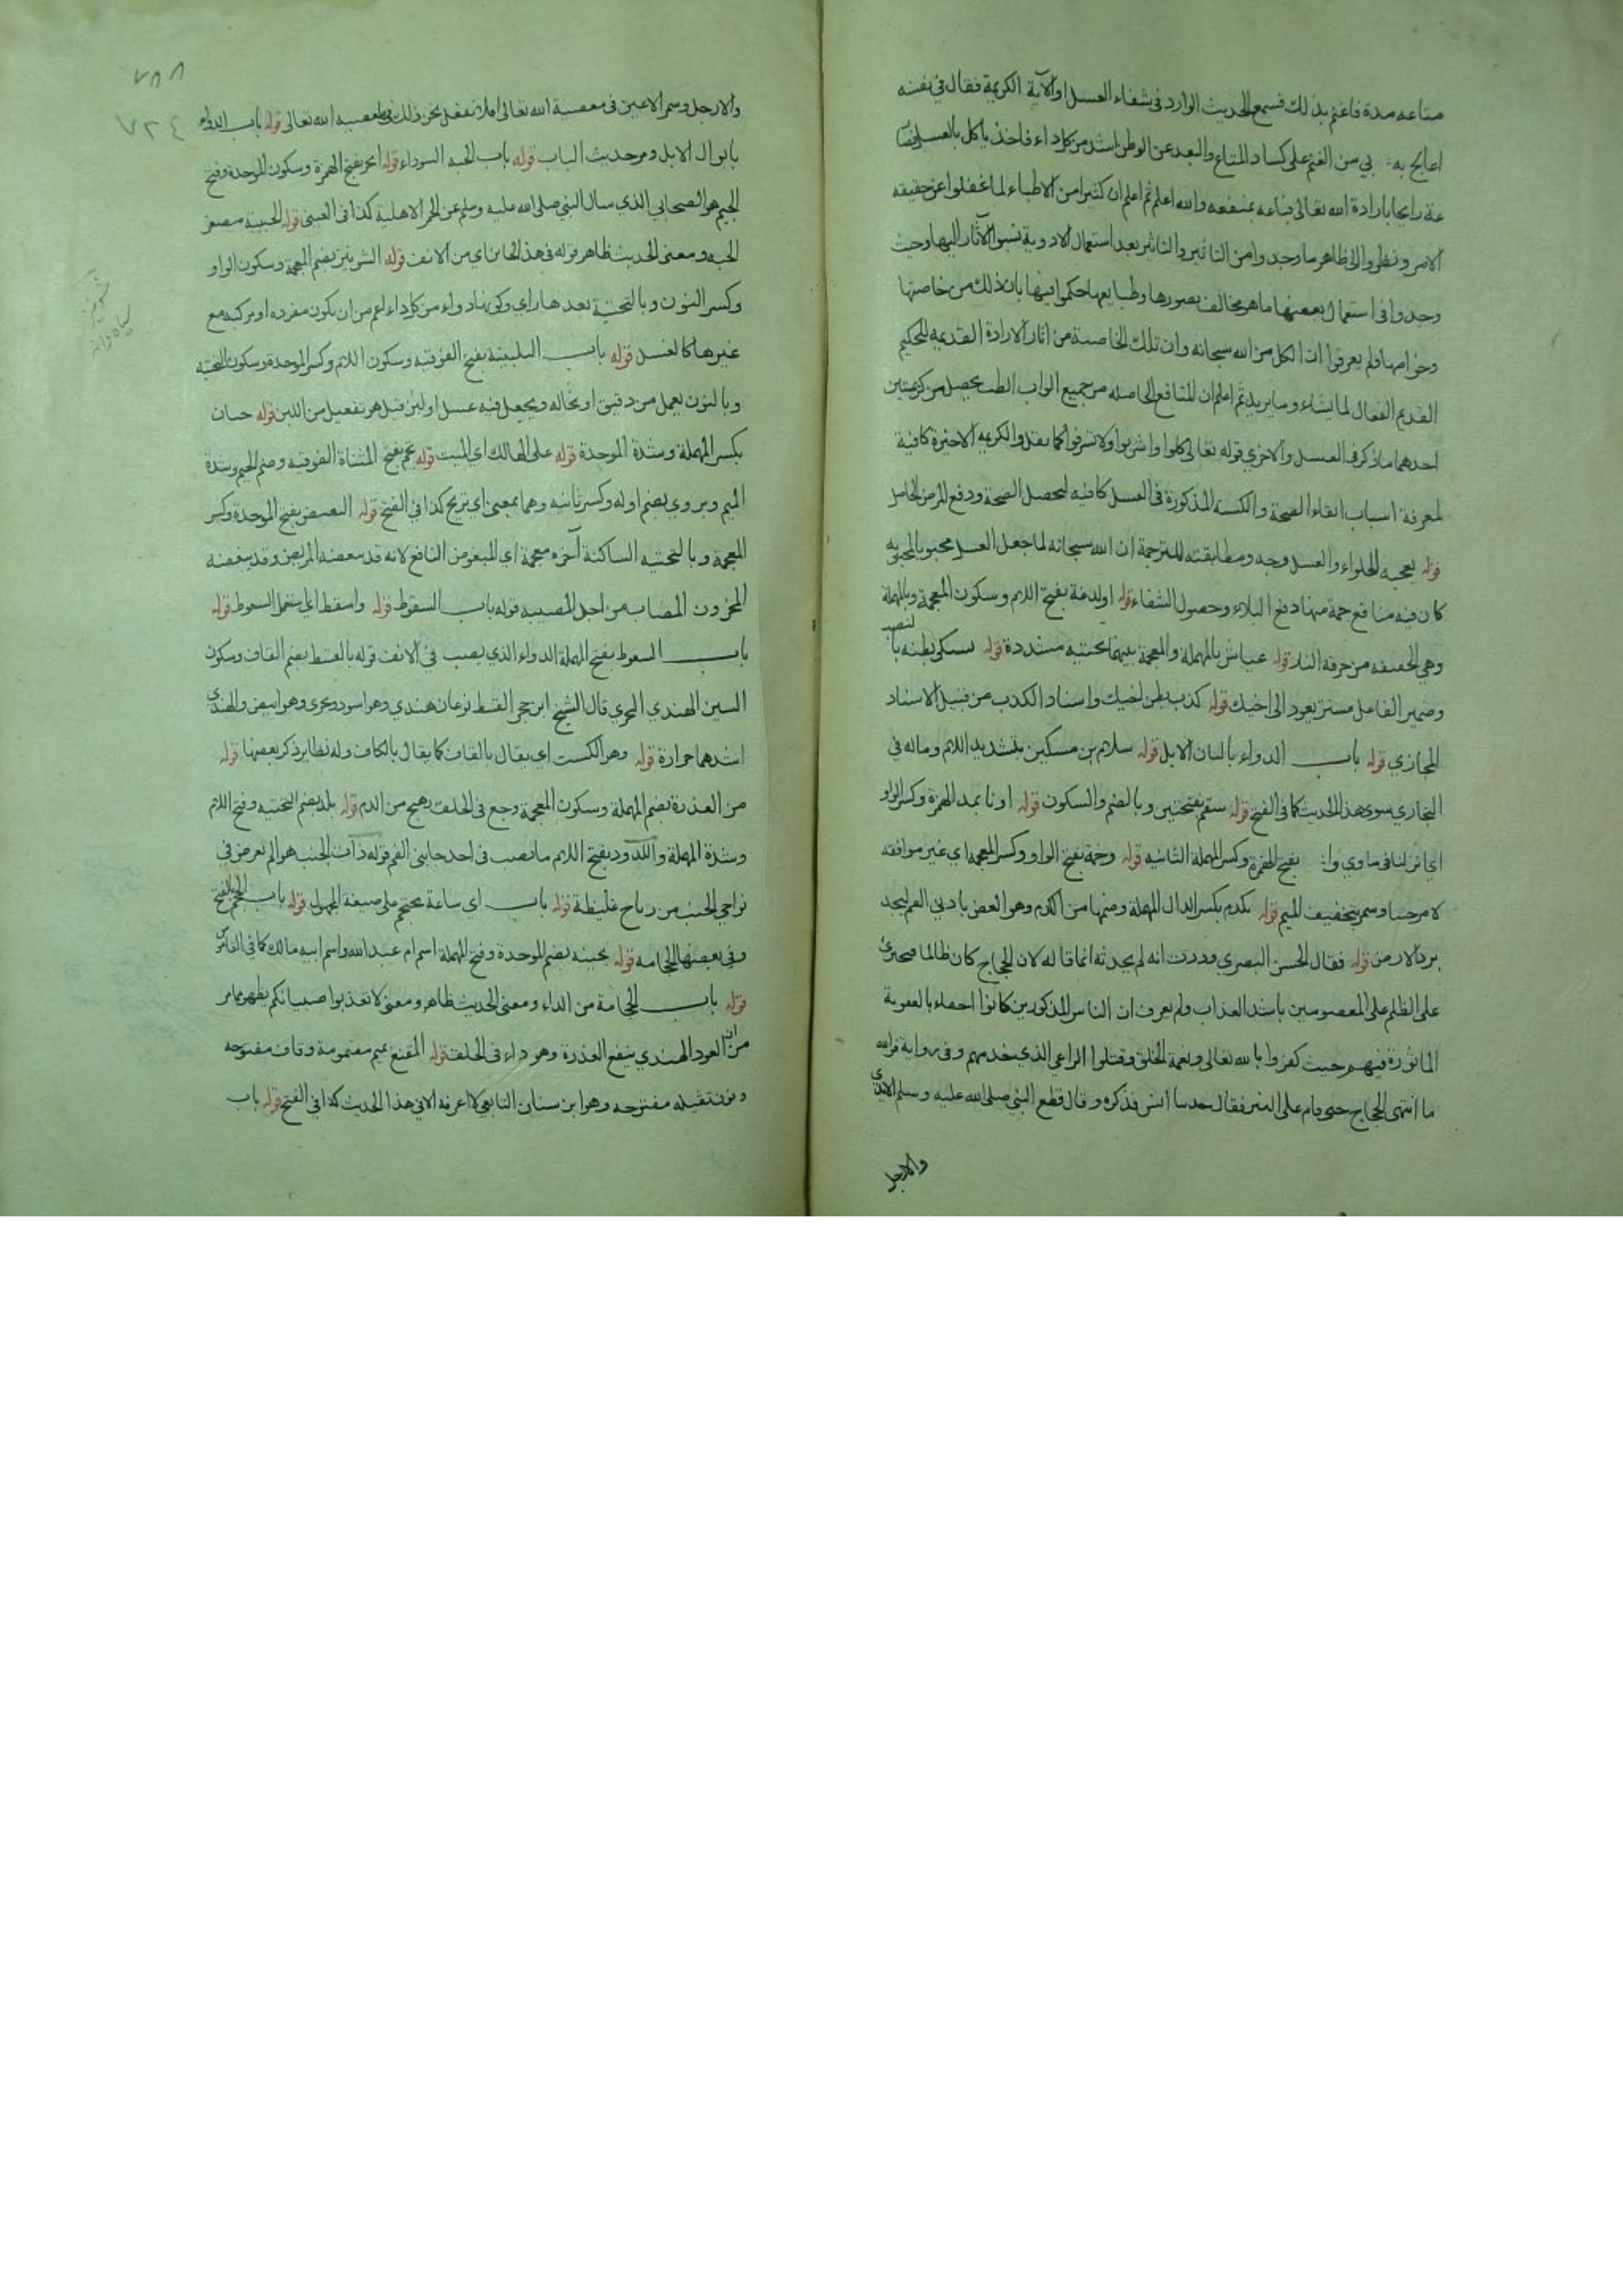 متاعه مدة فاغتم بذلك فسمع الحديث الوارد فى شفاء العسل او الآية الكريمة فقال في نفسه
اعالج به بي من الغم على كساد المتاع والبعد عن الوطن اشد من كل داء فاخذ ياكل بالعسل
بارادة الله تعالى متاعه بمنفعه والله اعلم ثم اعلم ان كثيرا من الاطباء لما غفلوا عن حقيقه
الامر ونظروا الى ظاهر ما وجدوا من التاثير والتاثر بعد استعمال الادوية نسبوا الآثار اليها وحيث
وجدوا فى استعمال بعضها ما هو مخالف بصورها وطبايعها حكموا فيها بان ذلك من خاصتها
وخواصها ولم يعرفوا ان الكل من الله سبحانه وان تلك الخاصة من اثار الارادة القديمه للحكيم
القديم الفعال لما يشاء وما يريد ثم اعلم ان المنافع الحاصله من جميع ابواب الطب يحصل من كريمتين
احدهما ما ذكر فى العسل والاخري قوله تعالى كلوا واشربوا ولا تسرفوا كما والكريمه الاخيرة كافية
لمعرفة اسباب ابقاء الصحة و المذكورة فى العسل كافيه لتحصل الصحة ودفع المرض الحاصل
قوله يعجبه الحلواء والعسل وجه ومطابقته للترجمة ان الله سبحانه لما جعل العسل محبوبا لمحبوبه
كان فيه منافع جمة منها دفع البلاء وحصول الشفاء قوله اولدغة بفتح اللام وسكون المعجمة وبالمهملة
وهي الخفيفه من حرقة النار قوله عياش بالمهملة والمعجمة بينهما تحتيه مشددة قوله يشتكى بطنه بالنصب
وضمير الفاعل مستتر يعود الى اخيك قوله كذب بطن اخيك واسناد الكذب من قبيل الاسناد
المجازي قوله باب الدواء بالبان الابل قوله سلام بن مسكين بتشديد اللام وماله في
البخاري سوى هذا الحديث كما فى الفتح قوله سقم بفتحتين وبالضم والسكون قوله اونا بمد الهمزة وكسر الواو
اي انزلنا فى ماوي بفتح الهمزة وكسر المهملة الثانيه قوله وخمة بفتح الواو وكسر المعجمه اي غير موافقه
بتخفيف الميم قوله يكدم بكسر الدال المهملة وضمها من الكدم وهو العض بادنى الفم ليجد
برد الارض قوله فقال الحسن البصري وددت انه لم يحدثه انما قاله لان الحجاج كان ظالما
على الظلم على المعصومين باشد العذاب ولم يعرف ان الناس المذكورين كانوا احقاء بالعقوبة
الماثورة فيهم حيث كفروا بالله تعالى وبنعمة الخلق وقتلوا الراعي الذي يخدمهم وفى رواية فوالله
ما انتهى الحجاج حتى قام على المنبر فقال حدثنا انس فذكره وقال قطع النبي صلى الله عليه وسلم الايدي
والارجل
٧٨٨
٧٣٤
والارجل وسمر الاعين فى معصية الله تعالى افلا نفعل نحن ذلك فى معصيه الله تعالى قوله باب الدواء
بابوال الابل ومر حديث الباب قوله باب الحبه السوداء قوله ابجر بفتح الهمزة وسكون الموحدة وفتح
الجيم هو الصحابي الذي سال النبي صلى الله عليه وسلم عن الحمر الاهلية كذا فى العيني قوله الحبيبة مصغر
الحبه ومعنى الحديث ظاهر قوله فى هذا الجانب اي من الانف قوله الشونيز بضم المعجمة وسكون الواو
وكسر النون وبالتحتية بعدها زاي وكونها دواء من كل داء اعم من ان يكون مفرده او مركبه مع
غيرها كالعسل قوله باب التلبينة بفتح الفوقيه وسكون اللام وكسر الموحدة وسكون التحتيه
وبالنون يعمل من دقيق او نخاله ويجعل فيه عسل او لبن قيل هو تفعيل من اللبن قوله حبان
بكسر المهملة وشدة الموحدة قوله على الهالك اي الميت قوله تجم بفتح المثناة الفوقيه وضم الجيم وشدة
الميم ويروى بضم اوله وكسر ثانيه وهما بمعنى اي تريح كذا في الفتح قوله البغيض بفتح الموحدة وكسر
المعجمة وبالتحتيه الساكنة آخره معجمة اي المبغوض النافع لانه قد يبغضه المريض وقد يبغضه
المحزون المصاب من اجل المصيبه قوله باب السعوط قوله واسقط اي استعمل السعوط قوله
باب السعوط بفتح المهملة الدواء الذي يصب في الانف قوله بالقسط بضم القاف وسكون
السين الهندي البحري قال الشيخ ابن حجر القسط نوعان هندي وهو اسود وبحرى وهو ابيض والهندي
اشدهما حرارة قوله وهو الكست اي يقال بالقاف كما يقال بالكاف وله نظاير ذكر بعضها قوله
من العذرة بضم المهملة وسكون المعجمة وجع فى الحلق يهيج من الدم قوله يلد بضم التحتيه وفتح اللام
وشدة المهملة واللدود بفتح اللام ما يصب فى احد جانبى الفم قوله ذات الجنب هو الم يعرض في
نواحي الجنب من رياح غليظة قوله باب اي ساعة يحتجم على صيغة المجهول قوله باب الحجم بالفتح
وفي بعضها الحجامه قوله بحينه بضم الموحدة وفتح المهملة اسم ام عبد الله واسم ابيه مالك كما فى
قوله باب الحجامة من الداء ومعنى الحديث ظاهر ومعنى لا تعذبوا صبيانكم يظهر مما مر
من ان العود الهندي ينفع العذرة وهو داء فى الحلق قوله المقنع بميم مضمومة وقاف مفتوحه
ونون ثقيله مفتوحه وهو ابن سنان التابعي لا اعرفه الا في هذا الحديث كذا فى الفتح قوله باب
شونيز
سياه دانه